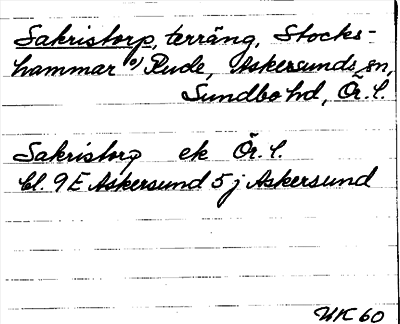 Sakristorp, terräng, Stocks-
hammar o/ Rude, Askersunds sn,
Sundbo hd, Ör. l.
Sakristorp ek Ör. l.
bl. 9E Askersund 5 j Askersund
UK 60